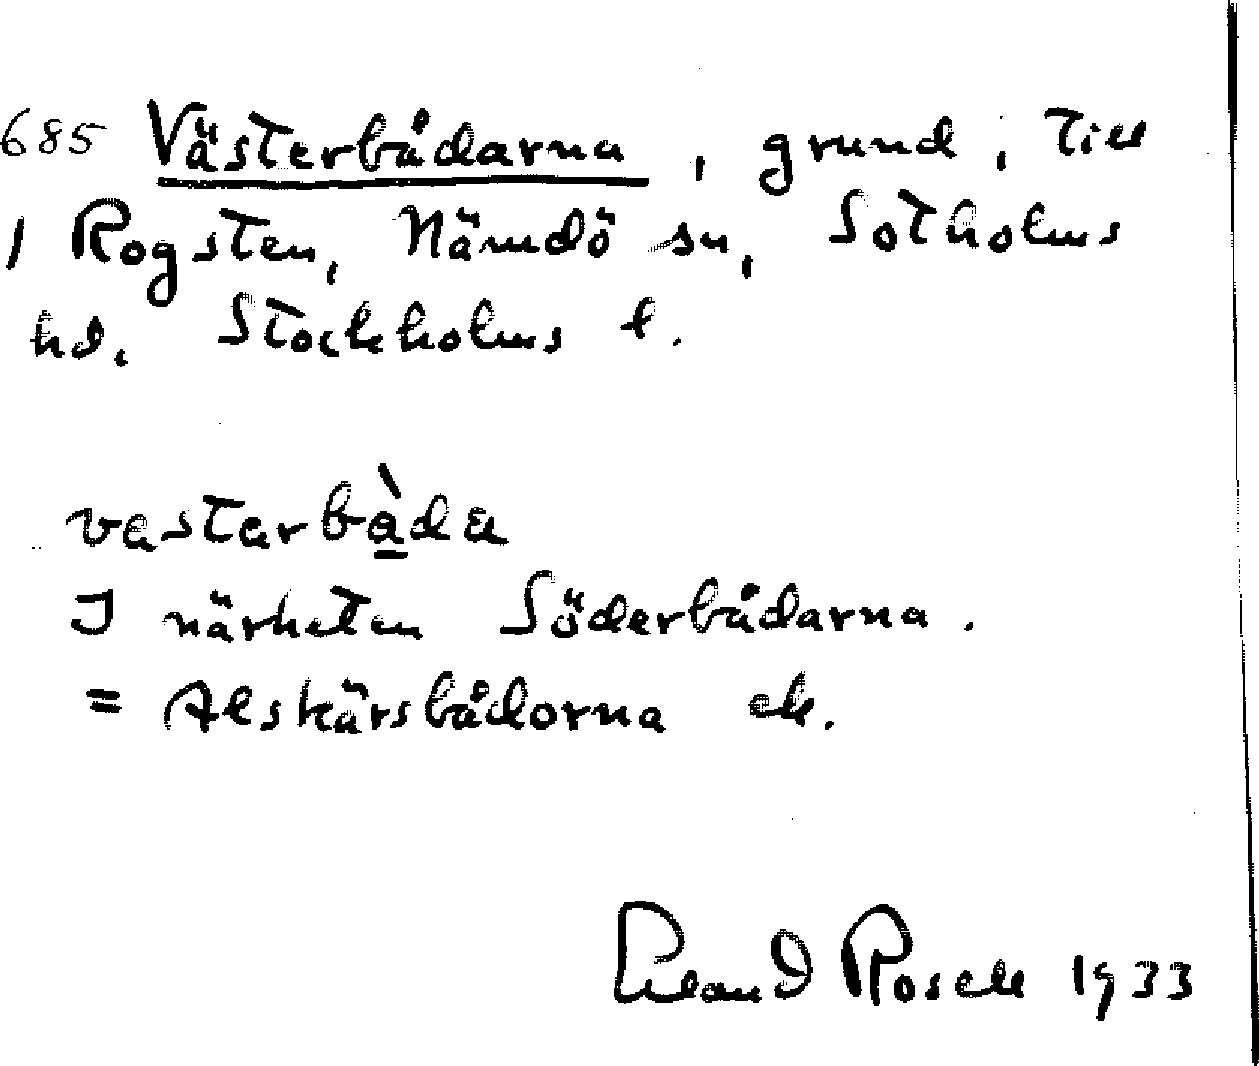 685 Västerbådarna, grund, till
1 Rogsten, Nämdö sn, Sotholms
hd. Stockholms l.
vestarbàda
I närheten Söderbådarna.
= Alskärsbådorna ek.
Erland Rosell 1933